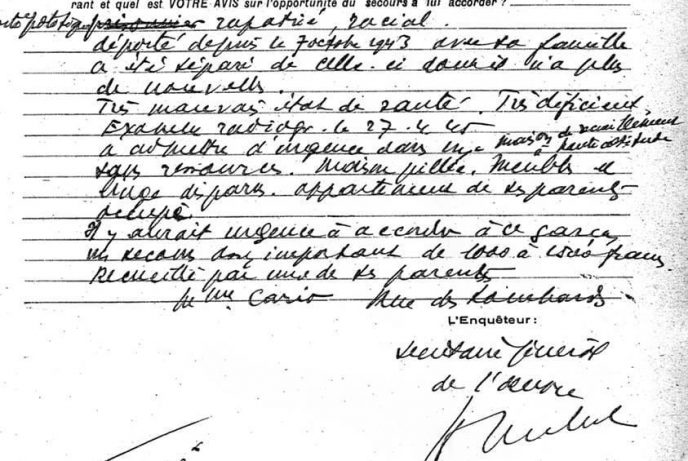 rant et quel est VOTRE AVIS sur l'opportunité du secours à lui accorder ?
prisonnier rapatrié, racial.
déporté depuis le 7 octobre 1943 avec sa famille
a été séparé de celle-ci dont il n'a plus
de nouvelles.
Très mauvais état de santé. Très déficient.
Examen radiogr. le 27.4.45
à admettre d'urgence dans une maison de
à haute altitude
sans ressources. Maison pillée. Meubles et
linge disparus. appartement de ses parents
occupé
Il y aurait urgence à accorder à ce garçon
un secours important de 1000 à 1500 francs.
Recueilli par une de ses parentes
Mme Cario Rue des Lombards.
L'Enquêteur:
Secrétaire Général
de l'œuvre